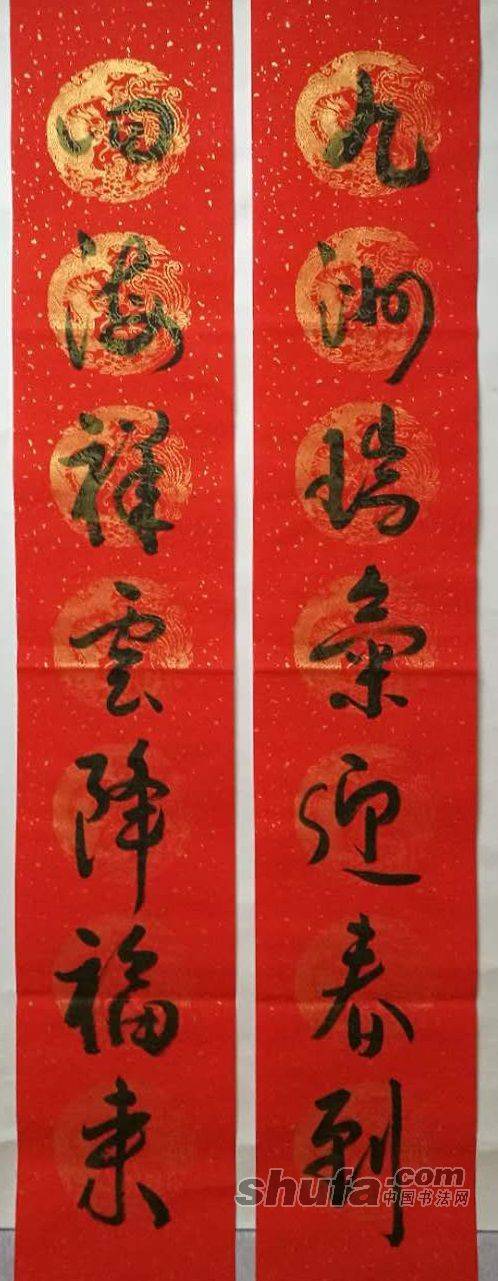 九洲瑞氣迎春到
四海祥雲降福来
shufa.com
中国书法网